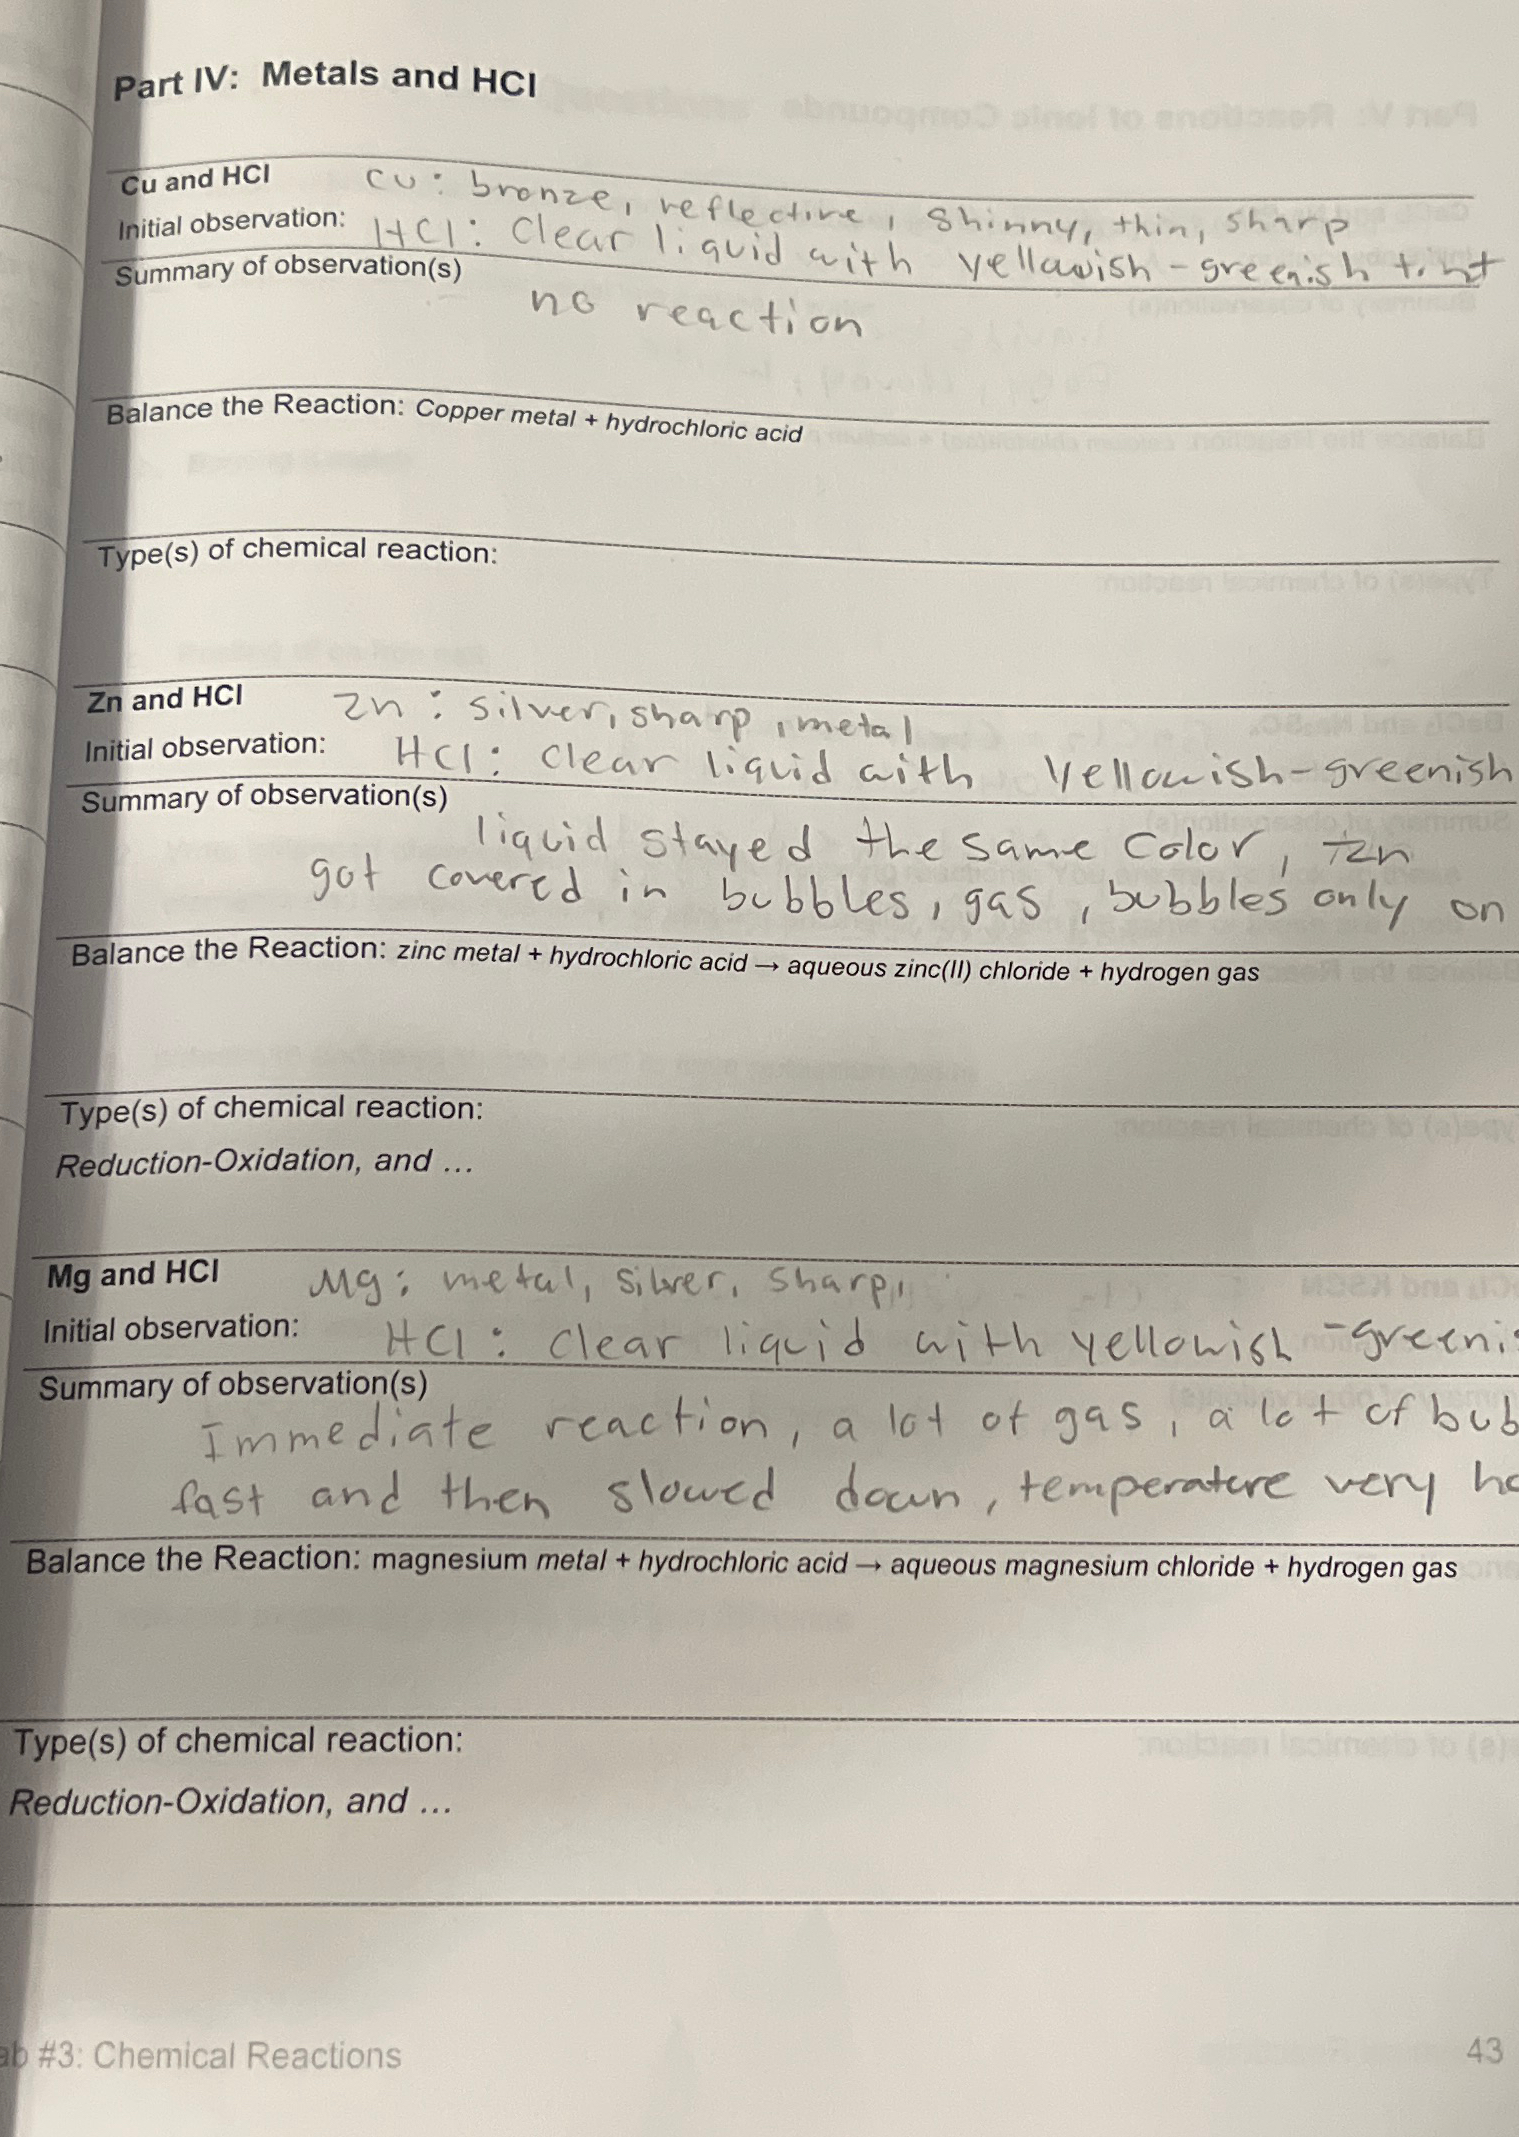 Part IV: Metals and HCl
Cu and HCl Cu: bronze, reflective, shinny, thin, sharp
Initial observation: HCl: Clear liquid with yellowish-greenish tint
Summary of observation(s)
no reaction
Balance the Reaction: Copper metal + hydrochloric acid
Type(s) of chemical reaction:
Zn and HCl Zn: silver, sharp, metal
Initial observation: HCl: clear liquid with Yellowish-greenish
Summary of observation(s)
liquid stayed the same color, Zn
got covered in bubbles, gas, bubbles only on
Balance the Reaction: zinc metal + hydrochloric acid → aqueous zinc(II) chloride + hydrogen gas
Type(s) of chemical reaction:
Reduction-Oxidation, and ...
Mg and HCl Mg: metal, silver, sharp,
Initial observation: HCl: clear liquid with yellowish-greenis
Summary of observation(s)
Immediate reaction, a lot of gas, a lot of bub
fast and then slowed down, temperature very ho
Balance the Reaction: magnesium metal + hydrochloric acid → aqueous magnesium chloride + hydrogen gas
Type(s) of chemical reaction:
Reduction-Oxidation, and ...
ab #3: Chemical Reactions 43